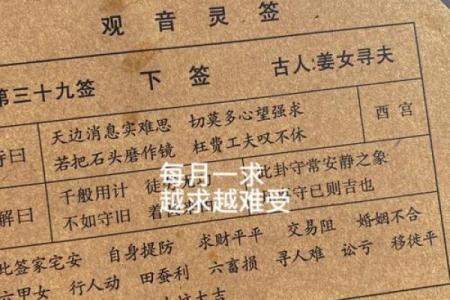 观音灵签
第三十九签 下签 古人:姜女寻夫
诗曰 天边消息实难思 切莫多心望强求 酉宫
若把石头磨作镜 枉费工夫叹不休
每月一求
越求越难受
解曰 千般用计 徒 此卦守常安静之象
不如守旧 着 守已则吉也
此签家宅安 自身提防 求财平平 交易阻 婚姻不合
六甲女 行人动 田蚕利 六畜损 寻人难 讼亏 移徙平
大吉